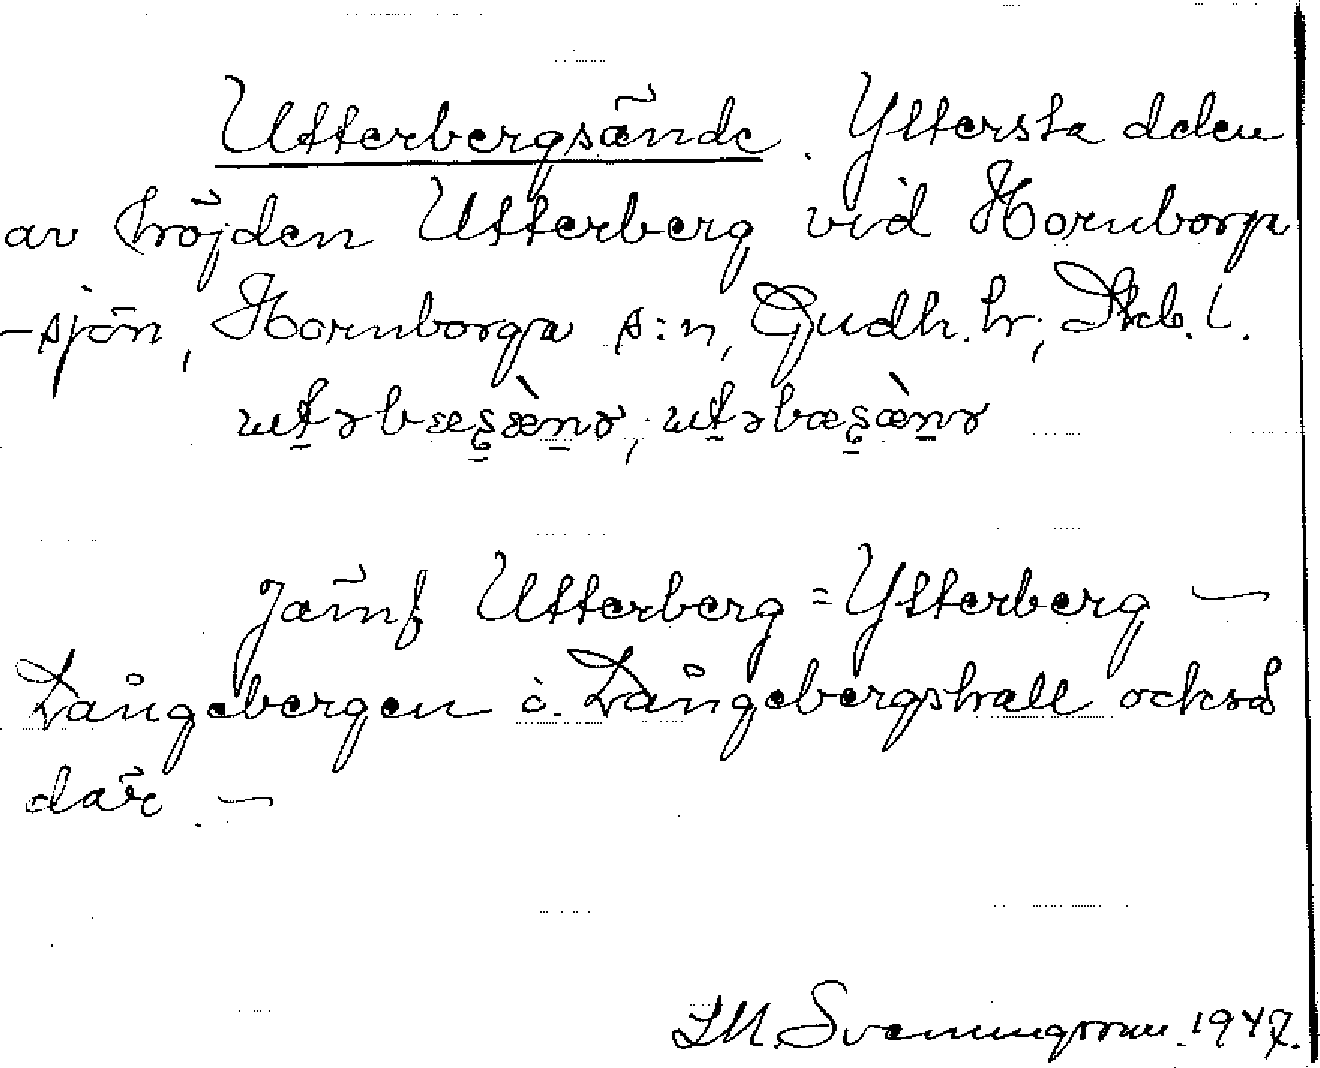 Utterbergsände. Yttersta delen
av höjden Utterberg vid Hornborga
-sjön, Hornborga s:n, Gudh. hr; Skb. l.
Jämf Utterberg = Ytterberg —
Långebergen o. Långebergshall också
där. —
S.M. Svenningsson. 1947.